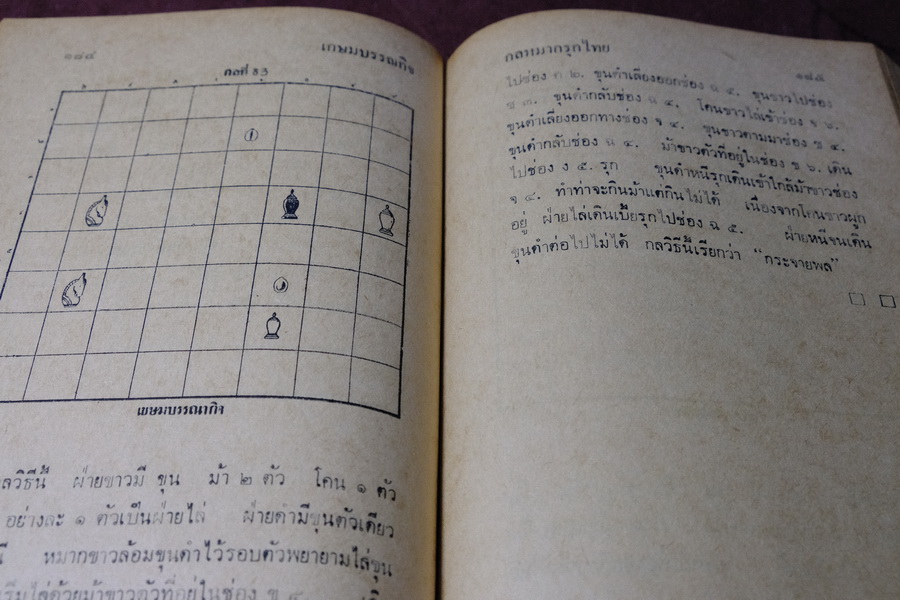 ๑๘๔
เกษมบรรณกิจ
กลที่ 83
เกษมบรรณากิจ
ลวิธีนี้ ฝ่ายขาวมี ขุน ม้า ๒ ตัว โคน ๑ ตัว
อย่างละ ๑ ตัวเป็นฝ่ายไล่ ฝ่ายดำมีขุนตัวเดียว
หมากขาวล้อมขุนดำไว้รอบตัวพยายามไล่ขุน
ไล่ด้วยม้าขาวตัวที่อยู่ในช่อง
กลหมากรุกไทย
๑๘๕
ไปช่อง ค ๒. ขุนดำเลี่ยงออกช่อง ฉ ๕. ขุนขาวไปช่อง
ช ๓. ขุนดำกลับช่อง ฉ ๔. โคนขาวไล่เข้าช่อง จ ๖.
ขุนดำเลี่ยงออกทางช่อง จ ๔. ขุนขาวตามมาช่อง ช ๔.
ขุนดำกลับช่อง ฉ ๔. ม้าขาวตัวที่อยู่ในช่อง ข ๖. เดิน
ไปช่อง ง ๕. รุก ขุนดำหนีรุกเดินเข้าใกล้ม้าขาวช่อง
จ ๔. ทำท่าจะกินม้าแต่กินไม่ได้ เนื่องจากโคนขาวผูก
อยู่ ฝ่ายไล่เดินเบี้ยรุกไปช่อง ฉ ๕. ฝ่ายหนีจนเดิน
ขุนดำต่อไปไม่ได้ กลวิธีนี้เรียกว่า “กระจายพล”